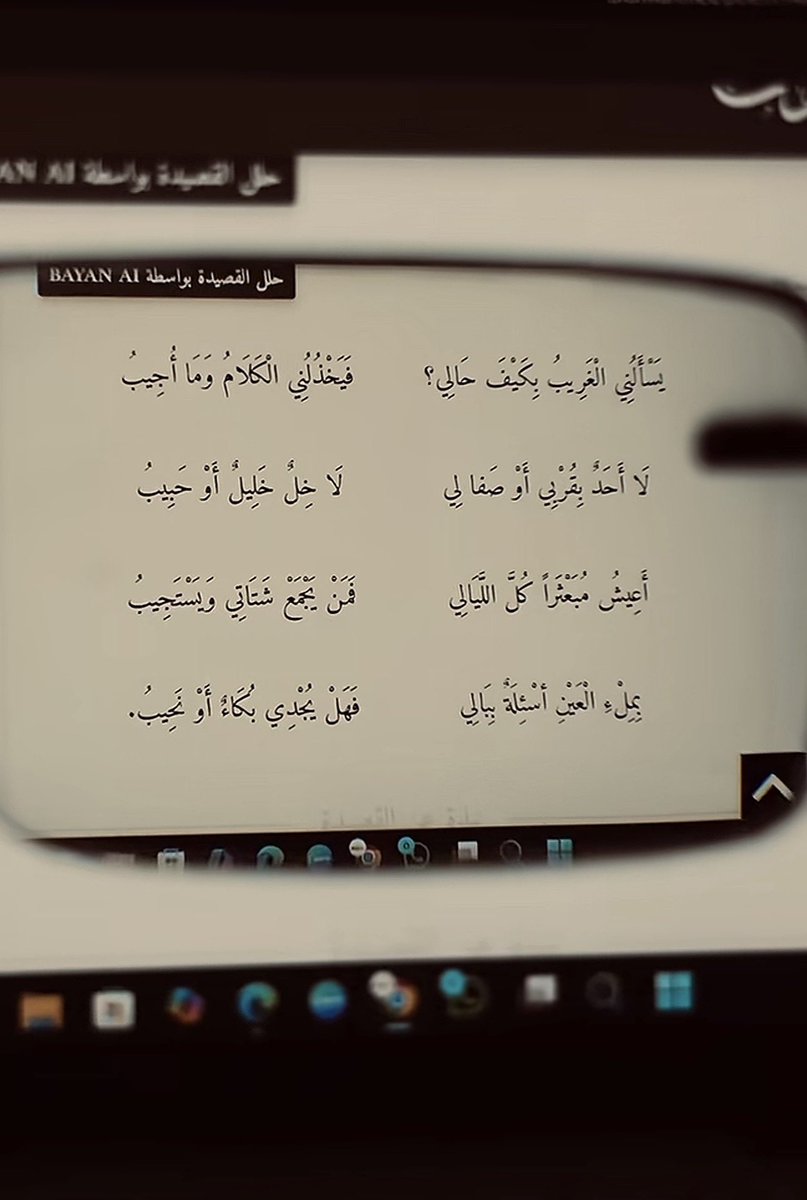 حلل القصيدة بواسطة AI
حلل القصيدة بواسطة BAYAN AI
يَسْأَلُنِي الْغَرِيبُ بِكَيْفَ حَالِي؟ فَيَخْذُلُنِي الْكَلَامُ وَمَا أُجِيبُ
لَا أَحَدٌ بِقُرْبِي أَوْ صَفا لِي لَا خِلٌ خَلِيلٌ أَوْ حَبِيبُ
أَعِيشُ مُبَعْثَراً كُلَّ اللَّيَالِي فَمَنْ يَجْمَعْ شَتَاتِي وَيَسْتَجِيبُ
بِمِلْءِ الْعَيْنِ أسْئِلَةٌ بِبَالِي فَهَلْ يُجْدِي بُكَاءٌ أَوْ نَحِيبُ.